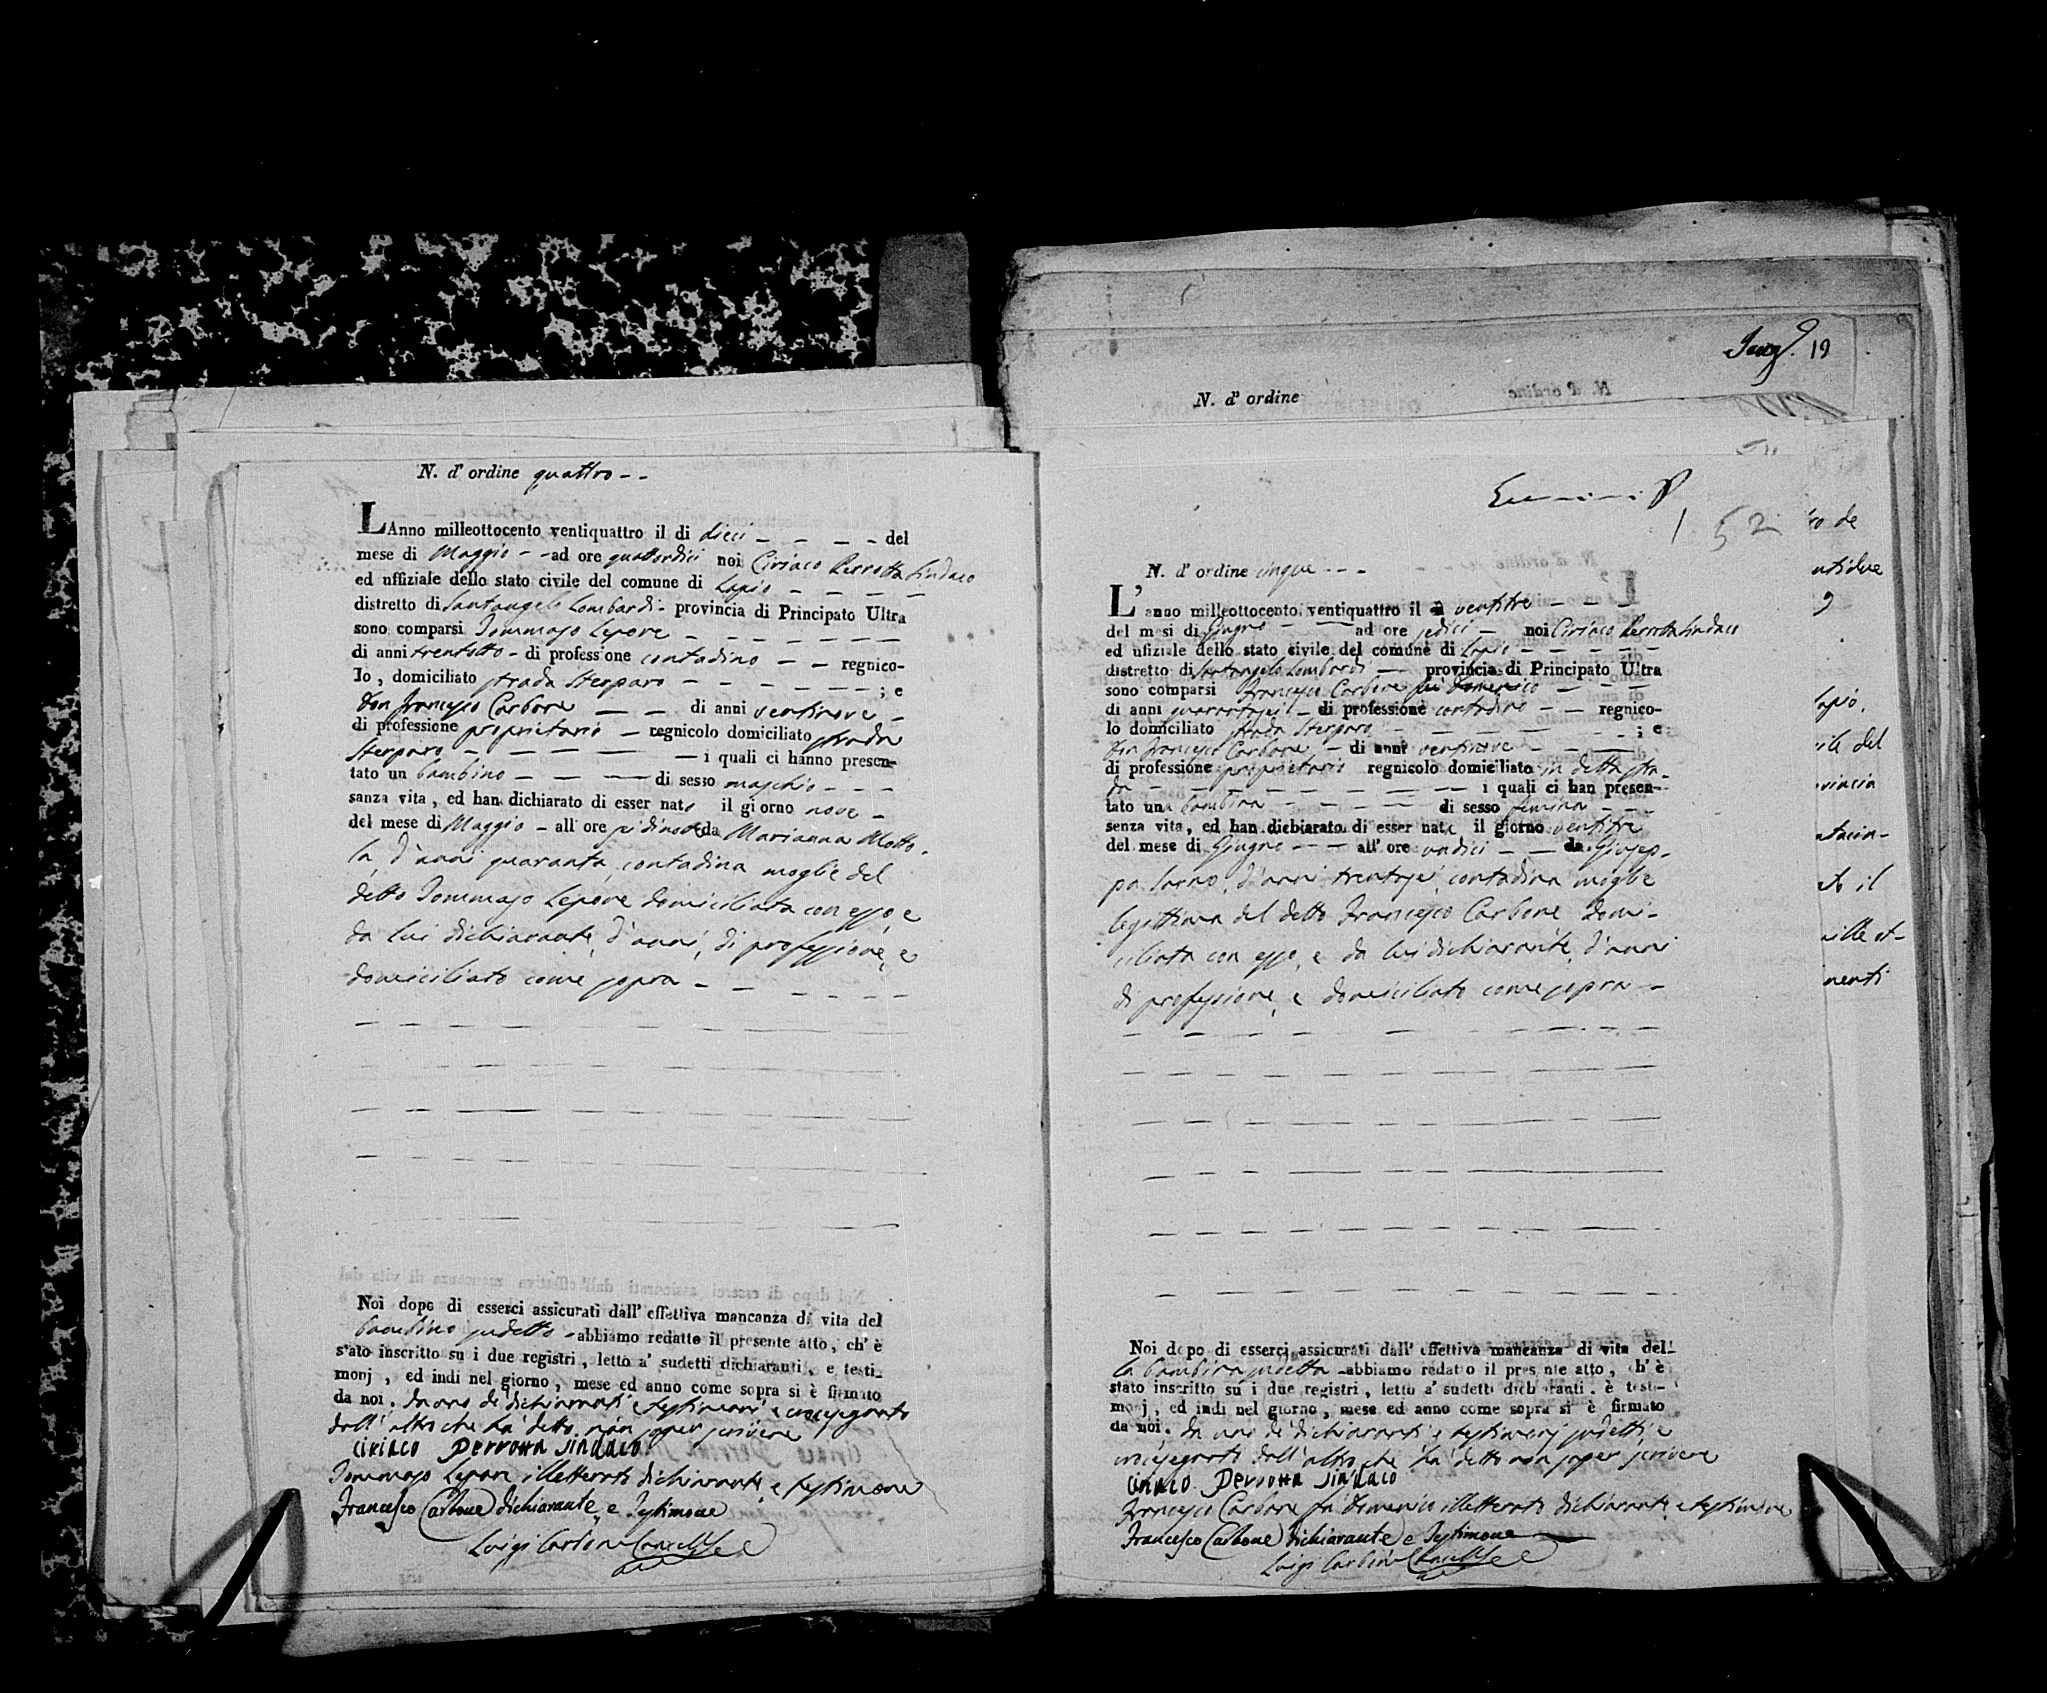 N. d' ordine quattro - -
LAnno milleottocento ventiquattro il di dieci - - - - del
mese di Maggio - - ad ore quattordici noi Ciriaco Perrotta Sindaco
ed uffiziale dello stato civile del comune di Lapio - - - -
distretto di Santangelo Lombardi - provincia di Principato Ultra
sono comparsi Tommaso Lepore - - - - - - -
di anni trentotto - di professione contadino - - regnico-
lo , domiciliato strada Sterparo - - - - - - ; e
Don Francesco Carbone - - di anni ventinove -
di professione proprietario - regnicolo domiciliato strada
Sterparo - - - - - i quali ci hanno presen-
tato un bambino - - - di sesso maschio - - -
sanza vita , ed han dichiarato di esser nato il giorno nove -
del mese di Maggio - all' ore diecinove da Marianna Motto-
la, d'anni quaranta, contadina moglie del
detto Tommaso Lepore domiciliata con esso, e
da lui dichiarante, d'anni, di professione, e
domiciliato come sopra - - - - - -
Noi dopo di esserci assicurati dall' effettiva mancanza di vita del
bambino sudetto - abbiamo redatto il presente atto , ch' è
stato inscritto su i due registri , letto a' sudetti dichiaranti , e testi-
monj , ed indi nel giorno , mese ed anno come sopra si è firmato
da noi , da uno de' dichiaranti e testimonj e crocesegnato
dall' altro che ha detto non saper scrivere
Ciriaco Perrotta Sindaco
Tommaso Lepore illetterato dichiarante, e testimone
Francesco Carbone dichiarante, e Testimone
Luigi Carbone Cancelliere
19
N. d' ordine
52
N. d' ordine cinque - - -
L' anno milleottocento ventiquattro il ventitre - - -
del mesi di Giugno - - ad ore sedici - noi Ciriaco Perrotta Sindaco
ed ufiziale dello stato civile del comune di Lapio - - - - -
distretto di Santangelo Lombardi - provincia di Principato Ultra
sono comparsi Francesco Carbone fu Domenico - - -
di anni quarantasei - di professione contadino - - regnico-
lo domiciliato strada Sterparo - - - - - ; e
Don Francesco Carbone - di anni ventinove - - -
di professione proprietario regnicolo domiciliato in detta stra-
da - - - - - - - - i quali ci han presen-
tato una bambina - - - - - di sesso femina - - -
senza vita , ed han dichiarato di esser nata il giorno ventitre
del mese di Giugno - - - all' ore undici - - da Giusep-
pa Sarno, d'anni trentasei, contadina moglie
legittima del detto Francesco Carbone domi-
ciliata con esso, e da lui dichiarante, d'anni
di professione, e domiciliato come sopra -
Noi dopo di esserci assicurati dall' effettiva mancanza di vita del-
la bambina sudetta - abbiamo redatto il presente atto , ch' è
stato inscritto su i due registri , letto a' sudetti dichiaranti . è testi-
monj , ed indi nel giorno , mese ed anno come sopra si è firmato
da noi , da uno de' dichiaranti e testimonj sudetti, e
crocesegnato dall' altro che ha detto non saper scrivere
Ciriaco Perrotta Sindaco
Francesco Carbone fu Domenico illetterato dichiarante, e testimone
Francesco Carbone dichiarante e Testimone
Luigi Carbone Cancelliere